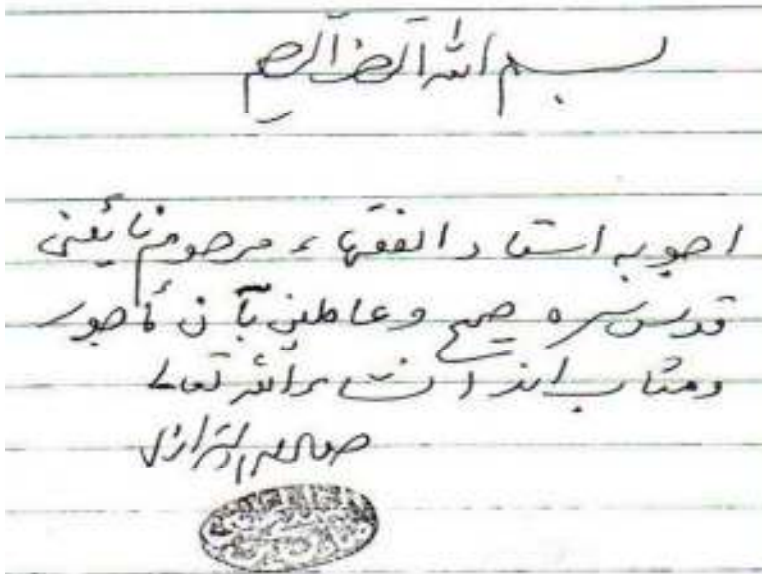 بسم الله الرحمن الرحیم
اجوبه استاد الفقهاء مرحوم نایٔنی
قدس سره صحیح و عاملین بآن مأجور
و مثاب اند انشاء الله تعالی